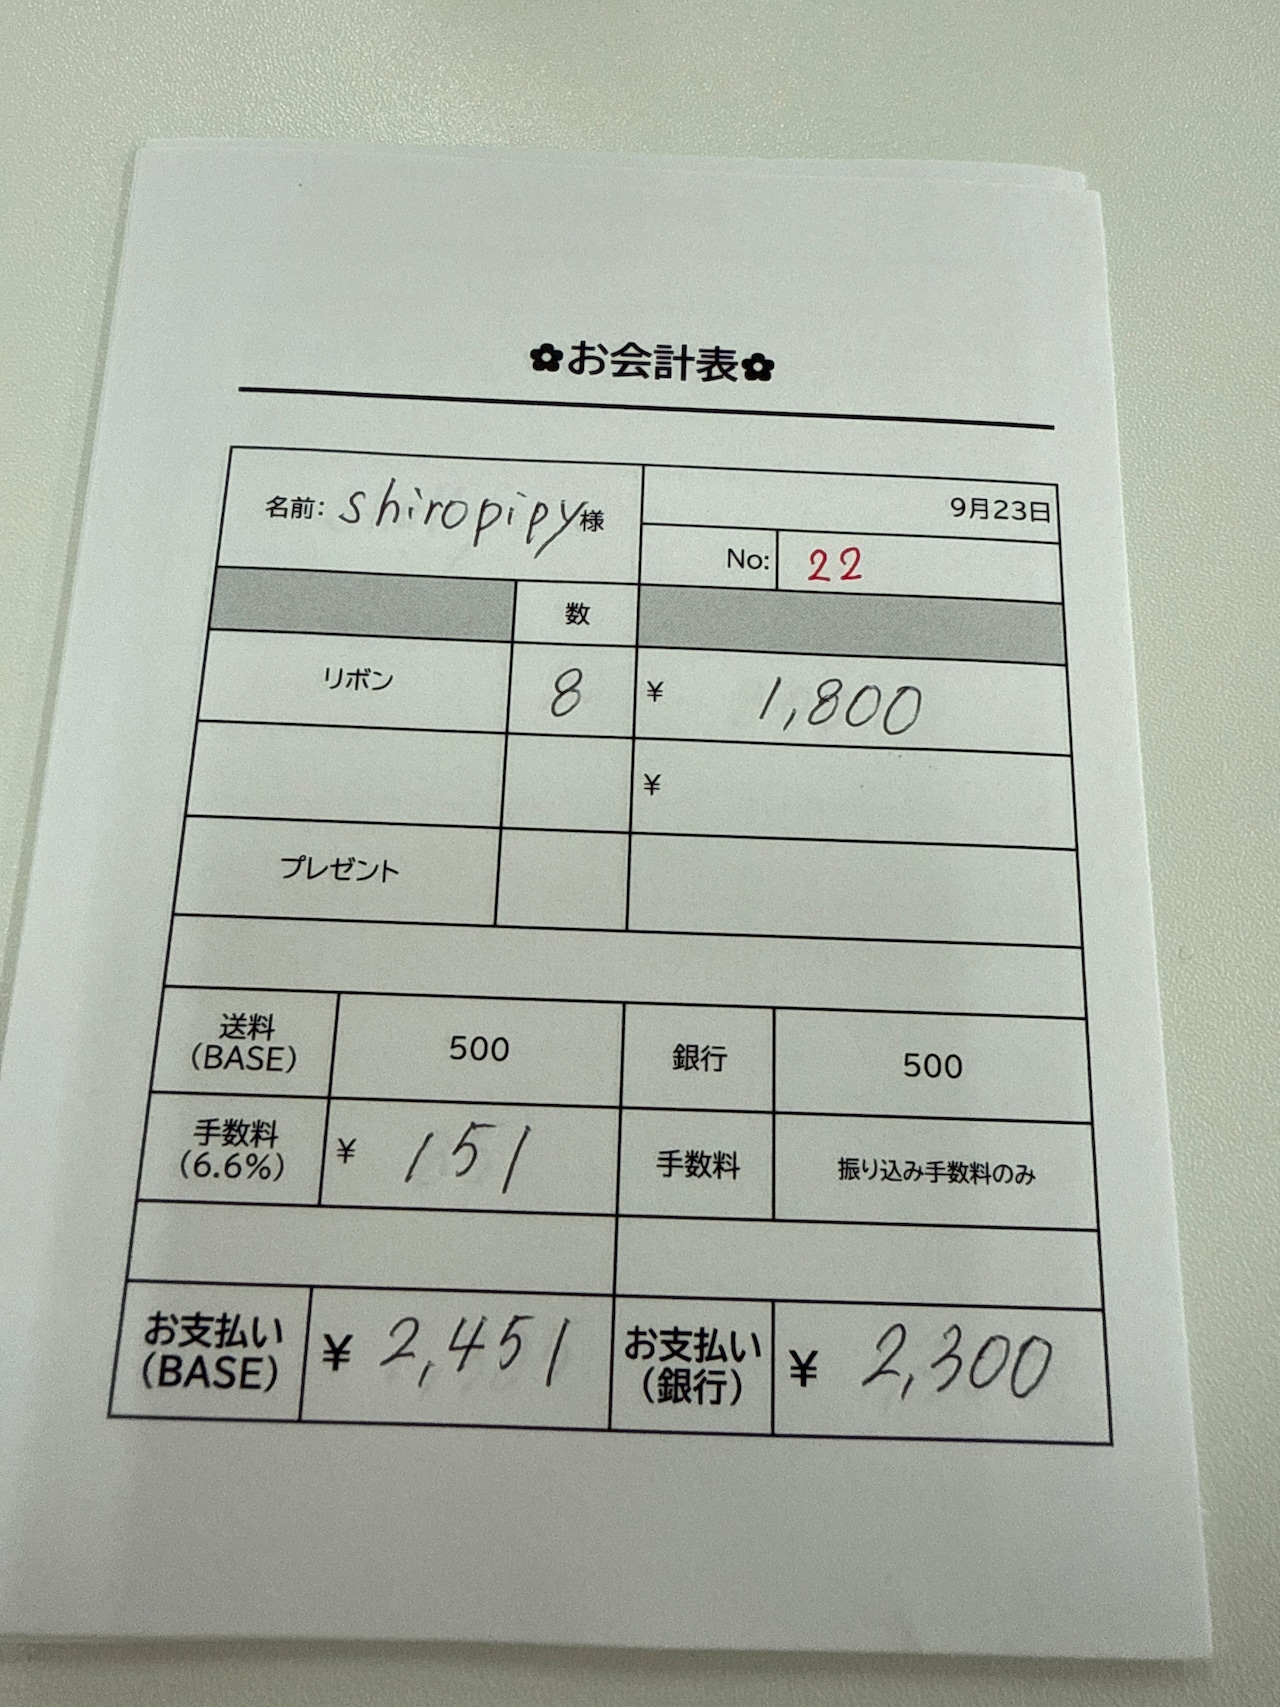 ✿お会計表✿
名前: shiropipy様
9月23日
No: 22
数
リボン 8 ¥ 1,800
¥
プレゼント
送料(BASE) 500 銀行 500
手数料(6.6%) ¥ 151 手数料 振り込み手数料のみ
お支払い(BASE) ¥ 2,451 お支払い(銀行) ¥ 2,300